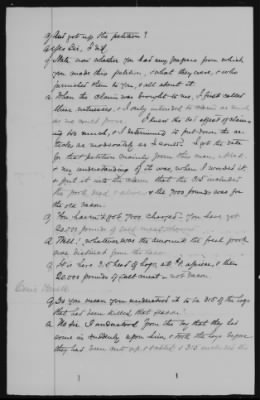 Q Who got up the petition?
A Yes Sir, I did.
Q State now whether you had any papers from which
you made this petition, & what they were, & who
furnished them to you, & all about it.
A When the claim was brought to me, I first called
these witnesses, & I only intended to claim as much
as we could prove. I knew the bad effect of claim-
ing too much, & I determined to put down the ar-
ticles as moderately as I could. I got the data
for that petition mainly from this man,
& my understanding of it was, when I visited it
& put it into the claim, that the 315 included
the pork, dead & alive & the 7000 pounds was for
the old bacon.
Q You haven't got 7000 charged. You have got
20.000 pounds of salt meat charged.
A Well! whatever was the amount the fresh pork
was distinct from the bacon.
Q It is here 315 head of hogs at apiece, & then
20.000 pounds of salt meat not bacon.
Q Do you mean you understood it to be 315 of the hogs
that had been killed that season?
A No Sir I understood from the boy that they had
come in suddenly upon him & took the hogs before
they had been cut up & salted, & 315 included the